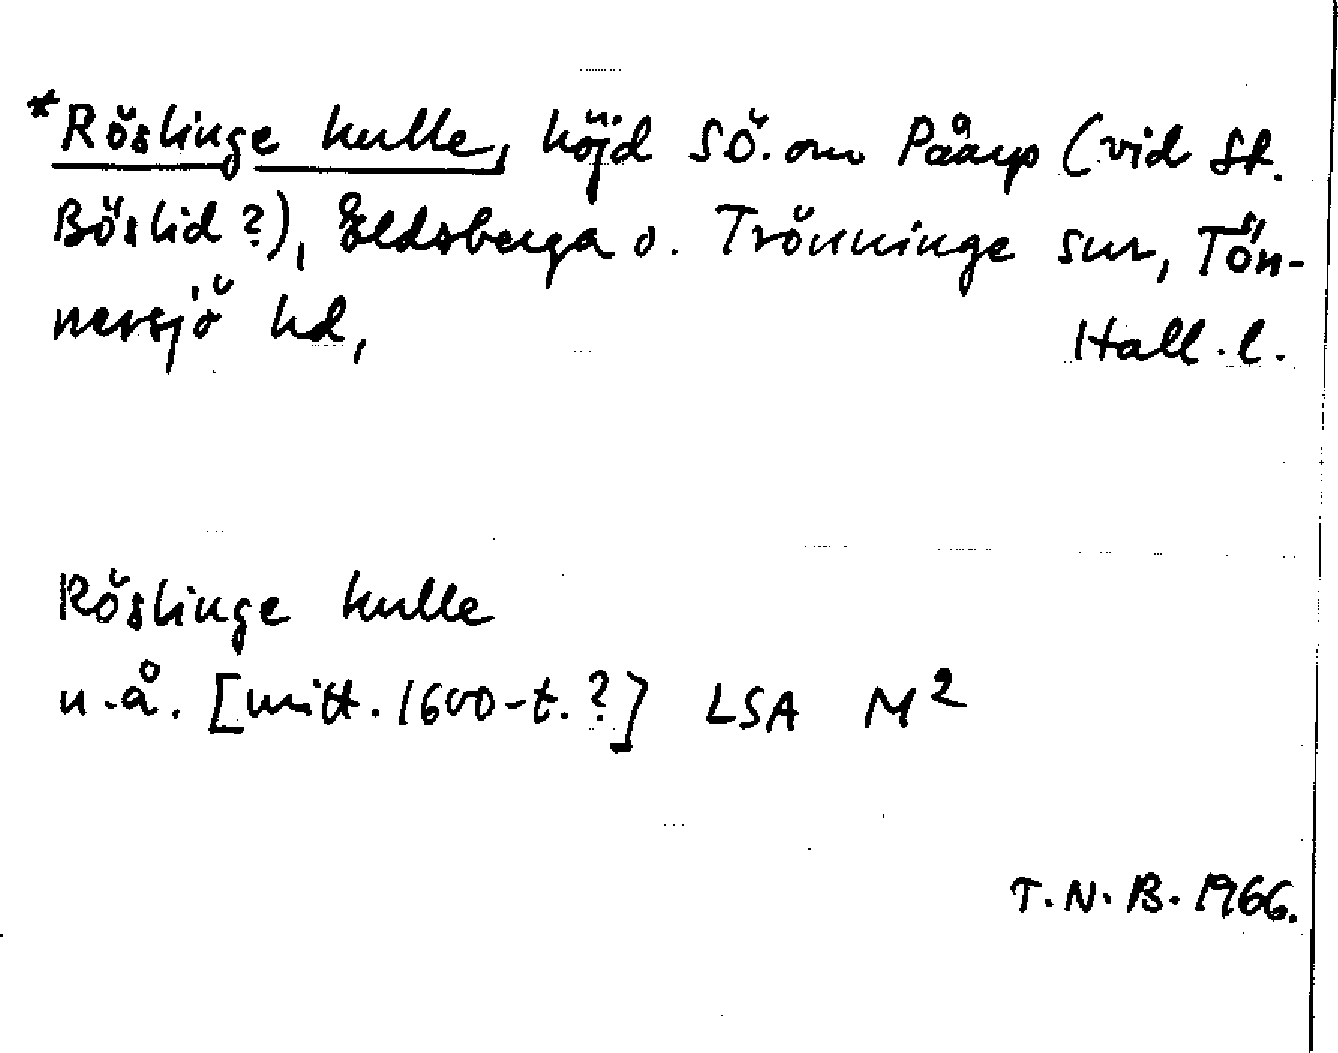 *Röslinge kulle, höjd SÖ. om Påarp (vid St.
Böslid?), Eldsberga o. Trönninge snr, Tön-
nersjö hd, Hall. l.
Röslinge kulle
u. å. [mitt. 1600-t.?] LSA M2
T. N. B. 1966.